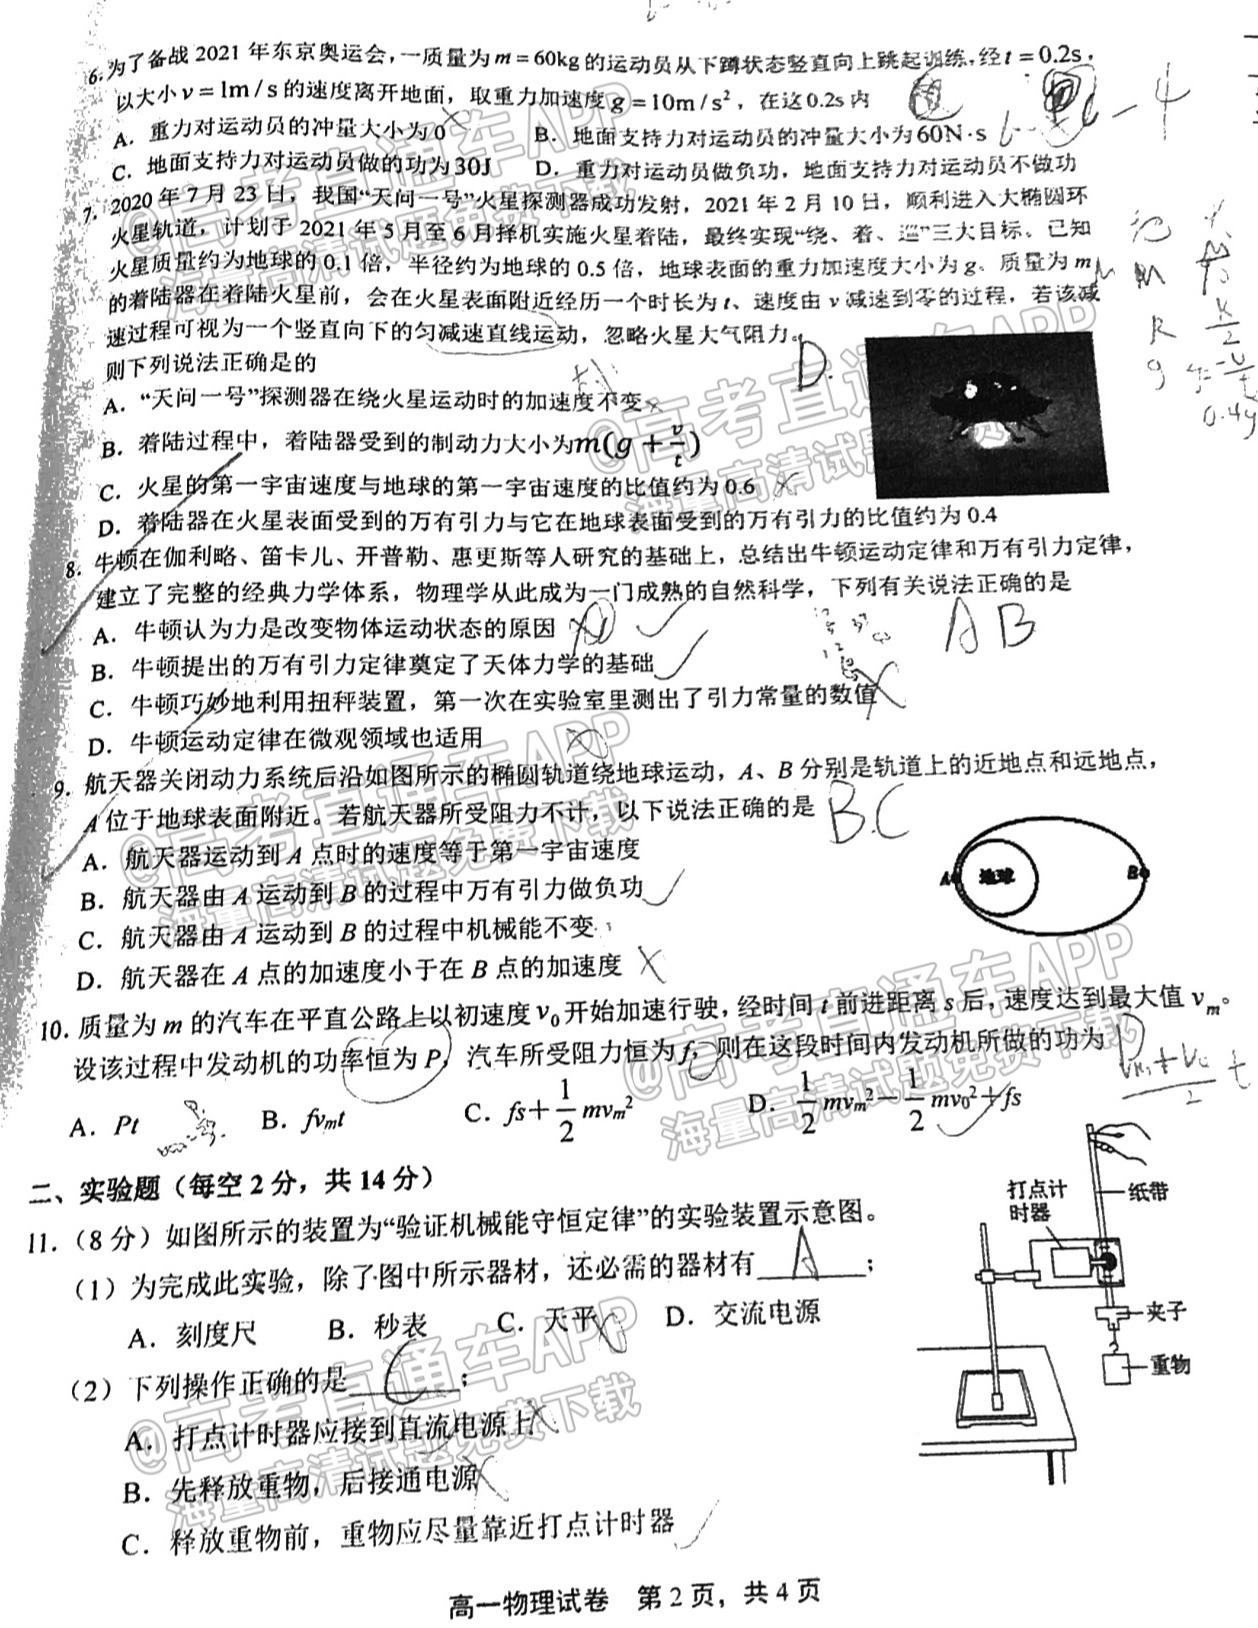 6. 为了备战 2021 年东京奥运会，一质量为 m = 60kg 的运动员从下蹲状态竖直向上跳起训练，经 t = 0.2s，
以大小 v = 1m/s 的速度离开地面，取重力加速度 g = 10m/s²，在这 0.2s 内
A．重力对运动员的冲量大小为 0 B．地面支持力对运动员的冲量大小为 60N·s
C．地面支持力对运动员做的功为 30J D．重力对运动员做负功，地面支持力对运动员不做功
7. 2020 年 7 月 23 日，我国“天问一号”火星探测器成功发射，2021 年 2 月 10 日，顺利进入大椭圆环
火星轨道，计划于 2021 年 5 月至 6 月择机实施火星着陆，最终实现“绕、着、巡”三大目标。已知
火星质量约为地球的 0.1 倍，半径约为地球的 0.5 倍，地球表面的重力加速度大小为 g。质量为 m
的着陆器在着陆火星前，会在火星表面附近经历一个时长为 t、速度由 v 减速到零的过程，若该减
速过程可视为一个竖直向下的匀减速直线运动，忽略火星大气阻力。
则下列说法正确是的 D.
A．“天问一号”探测器在绕火星运动时的加速度不变
B．着陆过程中，着陆器受到的制动力大小为m(g + v/t)
C．火星的第一宇宙速度与地球的第一宇宙速度的比值约为 0.6
D．着陆器在火星表面受到的万有引力与它在地球表面受到的万有引力的比值约为 0.4
8. 牛顿在伽利略、笛卡儿、开普勒、惠更斯等人研究的基础上，总结出牛顿运动定律和万有引力定律，
建立了完整的经典力学体系，物理学从此成为一门成熟的自然科学，下列有关说法正确的是
A．牛顿认为力是改变物体运动状态的原因 AB
B．牛顿提出的万有引力定律奠定了天体力学的基础
C．牛顿巧妙地利用扭秤装置，第一次在实验室里测出了引力常量的数值
D．牛顿运动定律在微观领域也适用
9. 航天器关闭动力系统后沿如图所示的椭圆轨道绕地球运动，A、B 分别是轨道上的近地点和远地点，
A 位于地球表面附近。若航天器所受阻力不计，以下说法正确的是 B.C
A．航天器运动到 A 点时的速度等于第一宇宙速度
B．航天器由 A 运动到 B 的过程中万有引力做负功
C．航天器由 A 运动到 B 的过程中机械能不变
D．航天器在 A 点的加速度小于在 B 点的加速度
A 地球 B
10. 质量为 m 的汽车在平直公路上以初速度 v₀ 开始加速行驶，经时间 t 前进距离 s 后，速度达到最大值 vₘ。
设该过程中发动机的功率恒为 P，汽车所受阻力恒为 f，则在这段时间内发动机所做的功为 D
A．Pt B．fvₘt C．fs+1/2 mvₘ² D．1/2 mvₘ²－1/2 mv₀²＋fs
二、实验题（每空 2 分，共 14 分）
11.（8 分）如图所示的装置为“验证机械能守恒定律”的实验装置示意图。
（1）为完成此实验，除了图中所示器材，还必需的器材有 A ；
A．刻度尺 B．秒表 C．天平 D．交流电源
（2）下列操作正确的是 C ；
A．打点计时器应接到直流电源上
B．先释放重物，后接通电源
C．释放重物前，重物应尽量靠近打点计时器
打点计
时器
纸带
夹子
重物
高一物理试卷 第 2 页，共 4 页
@高考直通车APP
海量高清试题免费下载
@高考直通车APP
海量高清试题免费下载
@高考直通车APP
海量高清试题免费下载
@高考直通车APP
海量高清试题免费下载
@高考直通车APP
海量高清试题免费下载